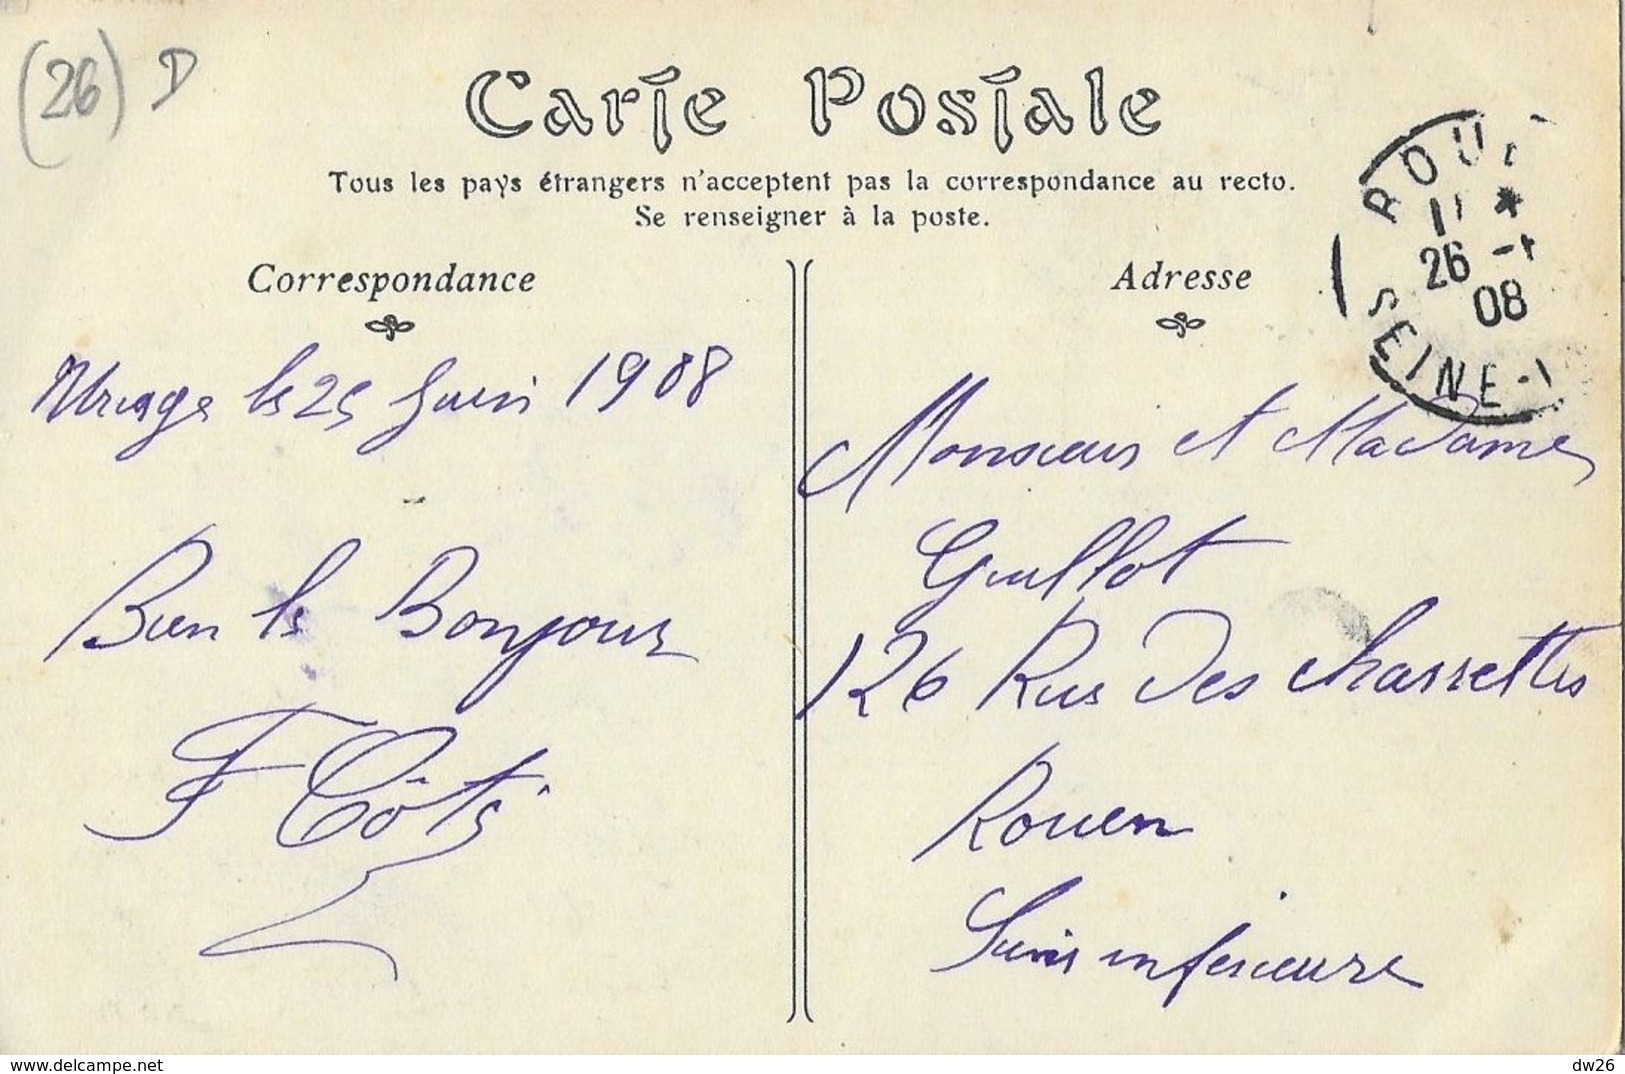 (26) D
Carte Postale
Tous les pays étrangers n'acceptent pas la correspondance au recto.
Se renseigner à la poste.
Correspondance
Uriage le 25 Juin 1908
Bien le Bonjour
F Côte
Adresse
Monsieur et Madame
Guillot
126 Rue Des charrettes
Rouen
Seine inférieure
ROUE
11 *
26 -
08
SEINE-I
delcampe.net
dw26